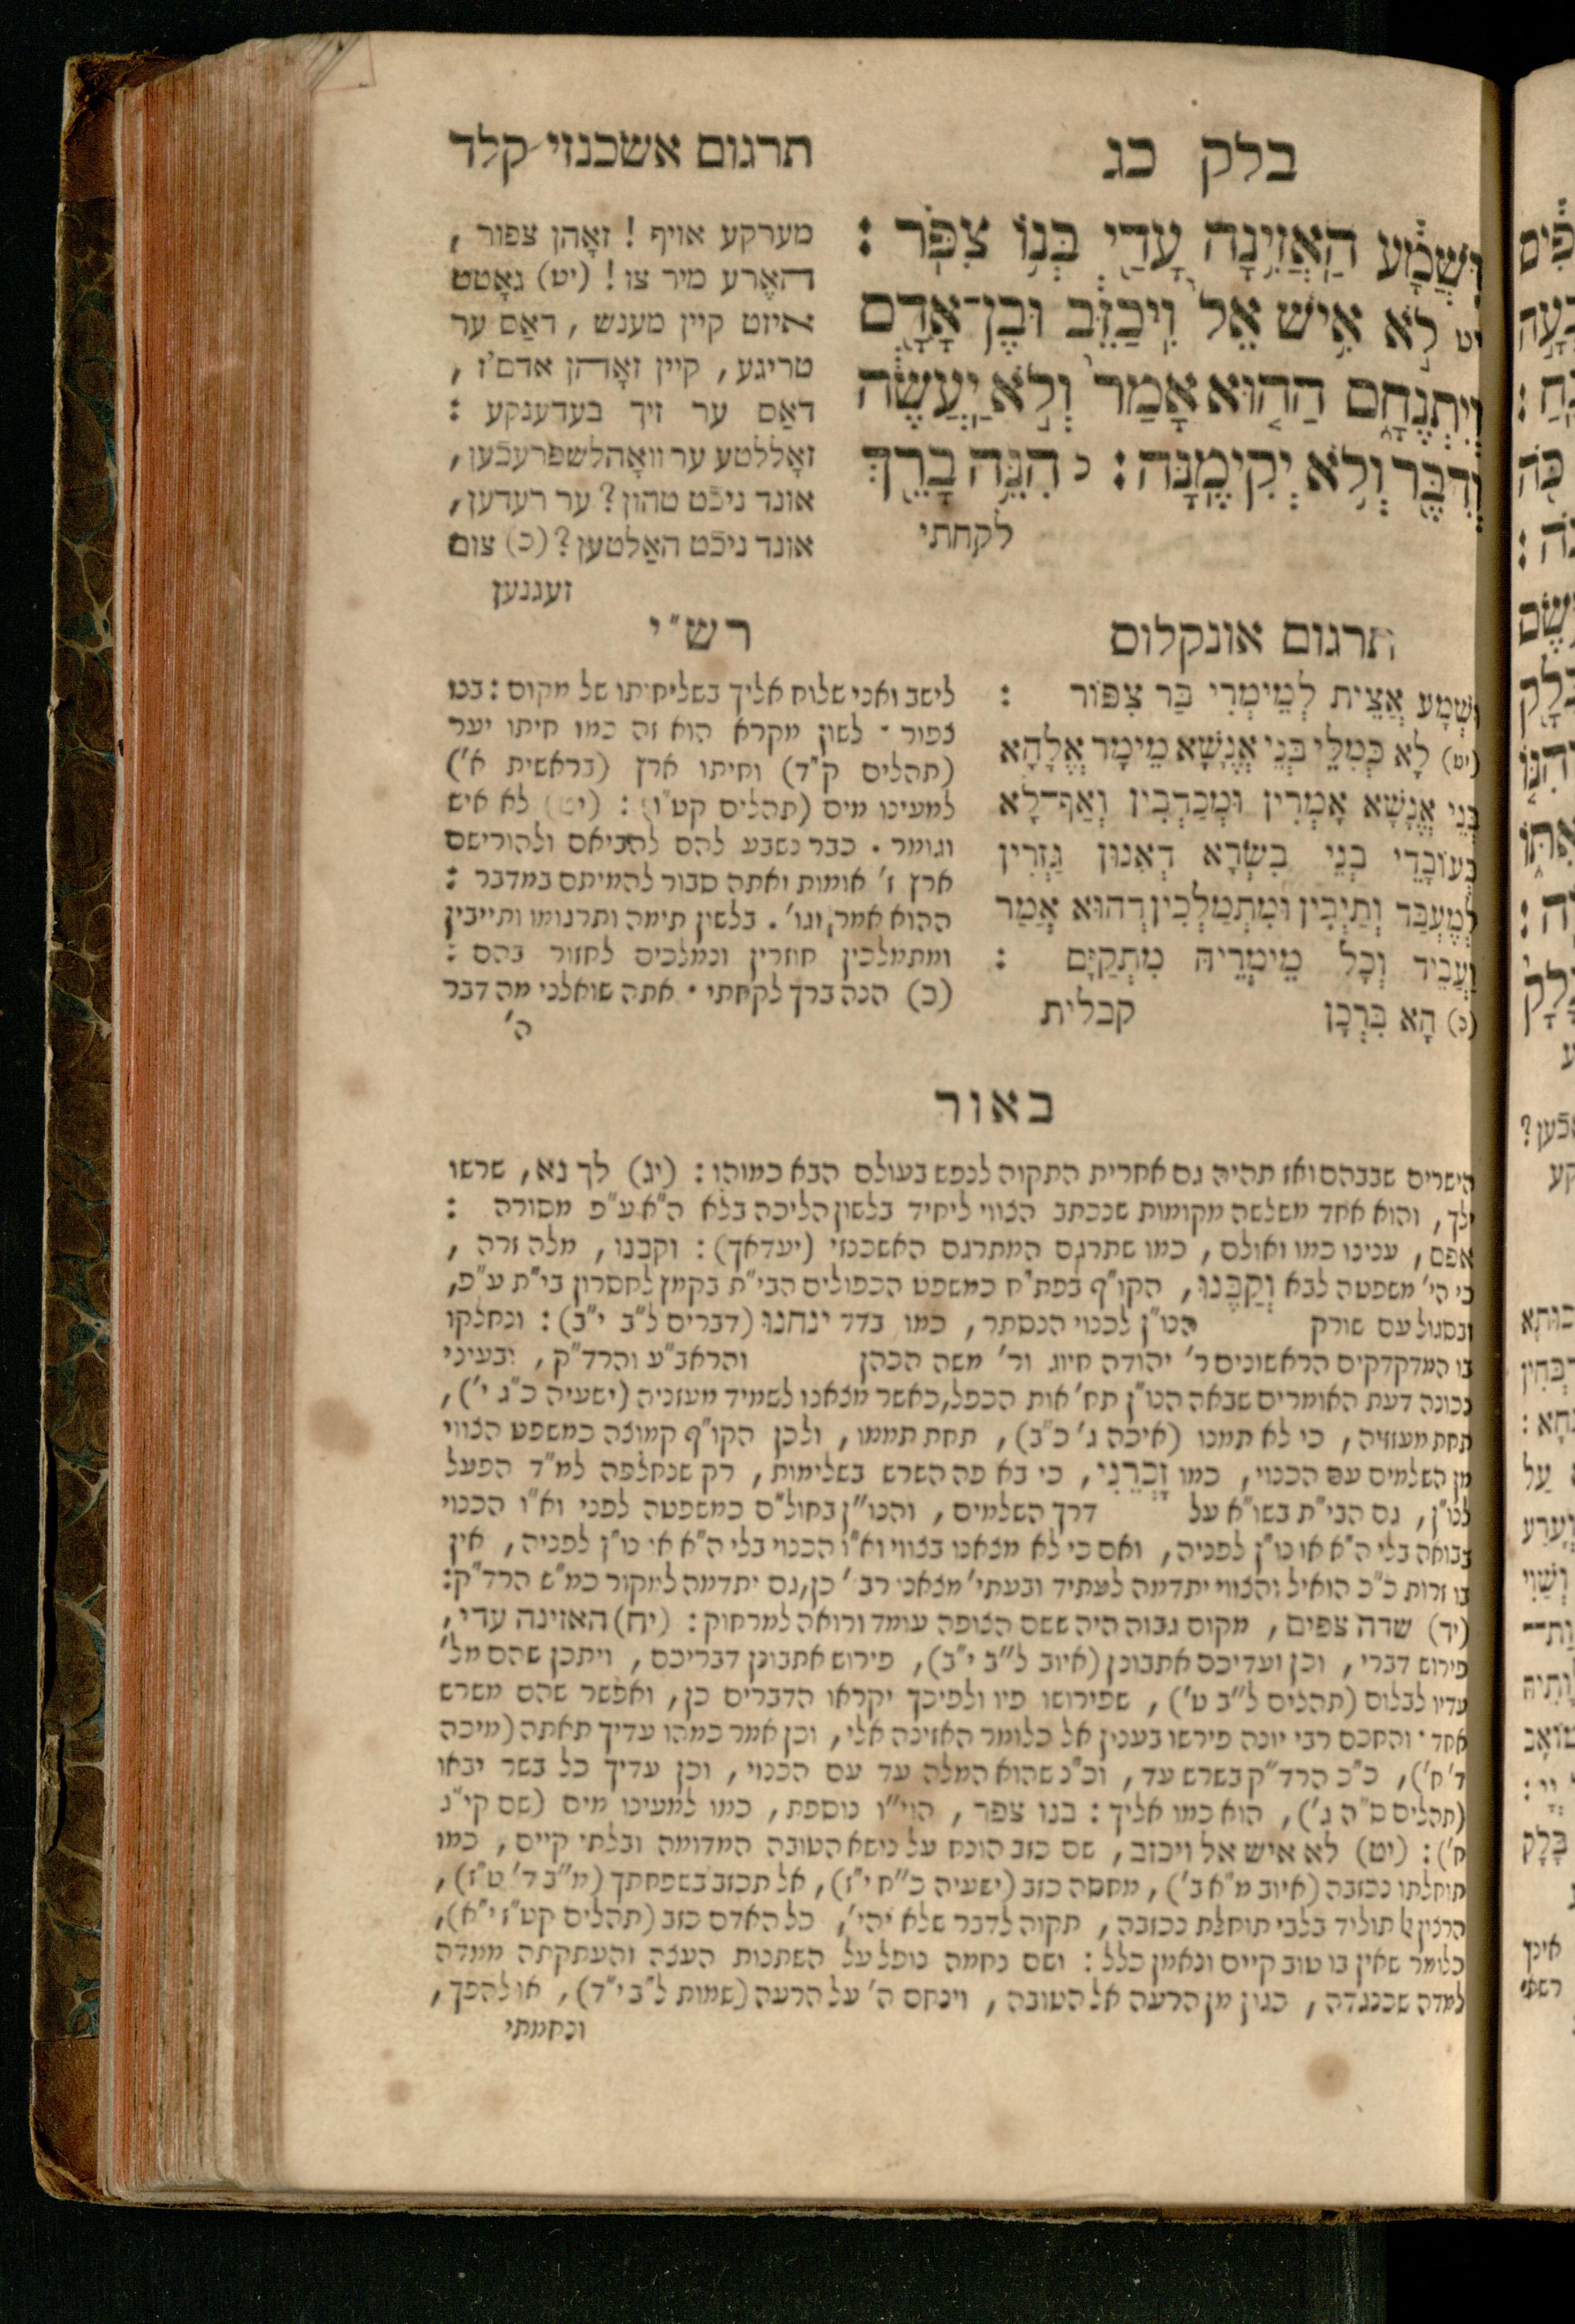 בלק כג
תרגום אשכנזי קלד
וּשֲׁמָ֔ע הַאֲזִ֥ינָה עָדַ֖י בְּנ֥וֹ צִפֹּֽר :
יט לֹ֣א אִ֥ישׁ אֵל֙ וִֽיכַזֵּ֔ב וּבֶן־אָדָ֖ם
וְיִתְנֶחָ֑ם הַה֤וּא אָמַר֙ וְלֹ֣א יַעֲשֶׂ֔ה
וְדִבֶּ֖ר וְלֹ֥א יְקִימֶֽנָּה : כ הִנֵּ֥ה בָרֵ֖ךְ
לקחתי
מערקע אויף ! זאָהן צפור ,
האֶרע מיר צו ! (יט) גאָטט
איזט קיין מענש , דאַס ער
טריגע , קיין זאָהן אדם'ז ,
דאַס ער זיך בעדענקע :
זאָללטע ער וואָהל שפרעכֿען ,
אונד ניכֿט טהון ? ער רעדען ,
אונד ניכֿט האַלטען ? (כ) צום
זעגנען
תרגום אונקלוס
וּשְׁמָע אֲצֵית לְמֵימְרִי בַּר צִפּוֹר :
(יט) לָא כְמִלֵּי בְּנֵי אֱנָשָׁא מֵימַר אֱלָהָא
בְּנֵי אֱנָשָׁא אָמְרִין וּמְכַדְבִין וְאַף־לָא
כְּעוֹבָדֵי בְּנֵי בִשְׂרָא דְאִנוּן גַּזְרִין
לְמֶעְבַּד וְתַיְבִין וּמִתְמַלְכִין דְהוּא אֲמַר
וַעֲבֵיד וְכָל מֵימְרֵיהּ מִתְקַיָּם :
(כ) הָא בִּרְכָן קבלית
רש"י
לישב ואני שלוח אליך בשליחותו של מקום : בנו
צפור ־ לשון מקרא הוא זה כמו חיתו יער
(תהלים ק"ד) וחיתו ארץ (בראשית א')
למעינו מים (תהלים קט"ו) : (יט) לא איש
וגומר . כבר נשבע להם להביאם ולהורישם
ארץ ז' אומות ואתה סבור להמיתם במדבר :
ההוא אמר וגו' . בלשון תימה ותרגומו ותייבין
ומתמלכין חוזרין ונמלכים לחזור בהם :
(כ) הנה ברך לקחתי . אתה שואלני מה דבר
ה'
באור
הישרים שבבהם ואז תהיה גם אחרית התקוה לנפש בעולם הבא כמוהו : (יג) לך נא , שרשו
ילך , והוא אחד משלשה מקומות שנכתב הצווי ליחיד בלשון הליכה בלא ה"א ע"פ מסורה :
אפס , ענינו כמו ואולם , כמו שתרגם המתרגם האשכנזי (יעדאך) : וקבנו , מלה זרה ,
כי הי' משפטה לבא וְקַבֶּנוּ , הקו"ף בפת"ח כמשפט הכפולים הבי"ת בקמץ לחסרון בי"ת ע"כ ,
ובסגול עם שורק הנו"ן לכנוי הנסתר , כמו בדד ינחנו (דברים ל"ב י"ב) : ונחלקו
בו המדקדקים הראשונים ר' יהודה חיוג ור' משה הכהן והראב"ע והרד"ק , ובעיני
נכונה דעת האומרים שבאה הנו"ן תח' אות הכפל , כאשר מצאנו לשמיד מעזניה (ישעיה כ"ג י') ,
תחת מעוזיה , כי לא תמנו (איכה ג' כ"ב) , תחת תממו , ולכן הקו"ף קמוצה כמשפט הצווי
מן השלמים עם הכנוי , כמו זָכְרֵנִי , כי בא פה השרש בשלימות , רק שנחלפה למ"ד הפעל
לנו"ן , גם הבי"ת בשו"א על דרך השלמים , והנו"ן בחול"ם כמשפטה לפני וא"ו הכנוי
בבואה בלי ה"א או נו"ן לפניה , ואם כי לא מצאנו בצווי וא"ו הכנוי בלי ה"א או נו"ן לפניה , אין
בו זרות כ"כ הואיל והצווי יתדמה לעתיד ובעתי' מצאנו רב' כן , גם יתדמה למקור כמ"ש הרד"ק :
(יד) שדה צפים , מקום גבוה היה ששם הצופה עומד ורואה למרחוק : (יח) האזינה עדי ,
פירוש דברי , וכן ועדיכם אתבונן (איוב ל"ב י"ב) , פירוש אתבונן דבריכם , ויתכן שהם מל'
עדיו לבלום (תהלים ל"ב ט') , שפירושו פיו ולפיכך יקראו הדברים כן , ואפשר שהם משרש
אחד ־ והחכם רבי יונה פירשו בענין אל כלומר האזינה אלי , וכן אמר כמהו עדיך תאתה (מיכה
ד' ח') , כ"כ הרד"ק בשרש עד , וכ"נ שהוא המלה עד עם הכנוי , וכן עדיך כל בשר יבאו
(תהלים ס"ה ג') , הוא כמו אליך : בנו צפר , הוי"ו נוספת , כמו למעינו מים (שם קי"ג
ח') : (יט) לא איש אל ויכזב , שם כזב הונח על נישא הטובה המדומה ובלתי קיים , כמו
תוחלתו נכזבה (איוב מ"א ב') , מחסה כזב (ישעיה כ"ח י"ז) , אל תכזב בשפחתך (מ"ב ד' ט"ז) ,
הרצון לא תוליד בלבי תוחלת נכזבה , תקוה לדבר שלא יהי' , כל האדם כזב (תהלים קט"ז י"א) ,
כלומר שאין בו טוב קיים ונאמן כלל : ושם נחמה נופל על השתנות העצה והעתקתה ממדה
למדה שכנגדה , כגון מן הרעה אל הטובה , וינחם ה' על הרעה (שמות ל"ב י"ד) , או להפך ,
ונחמתי